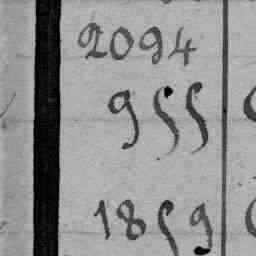 2094
955
1859